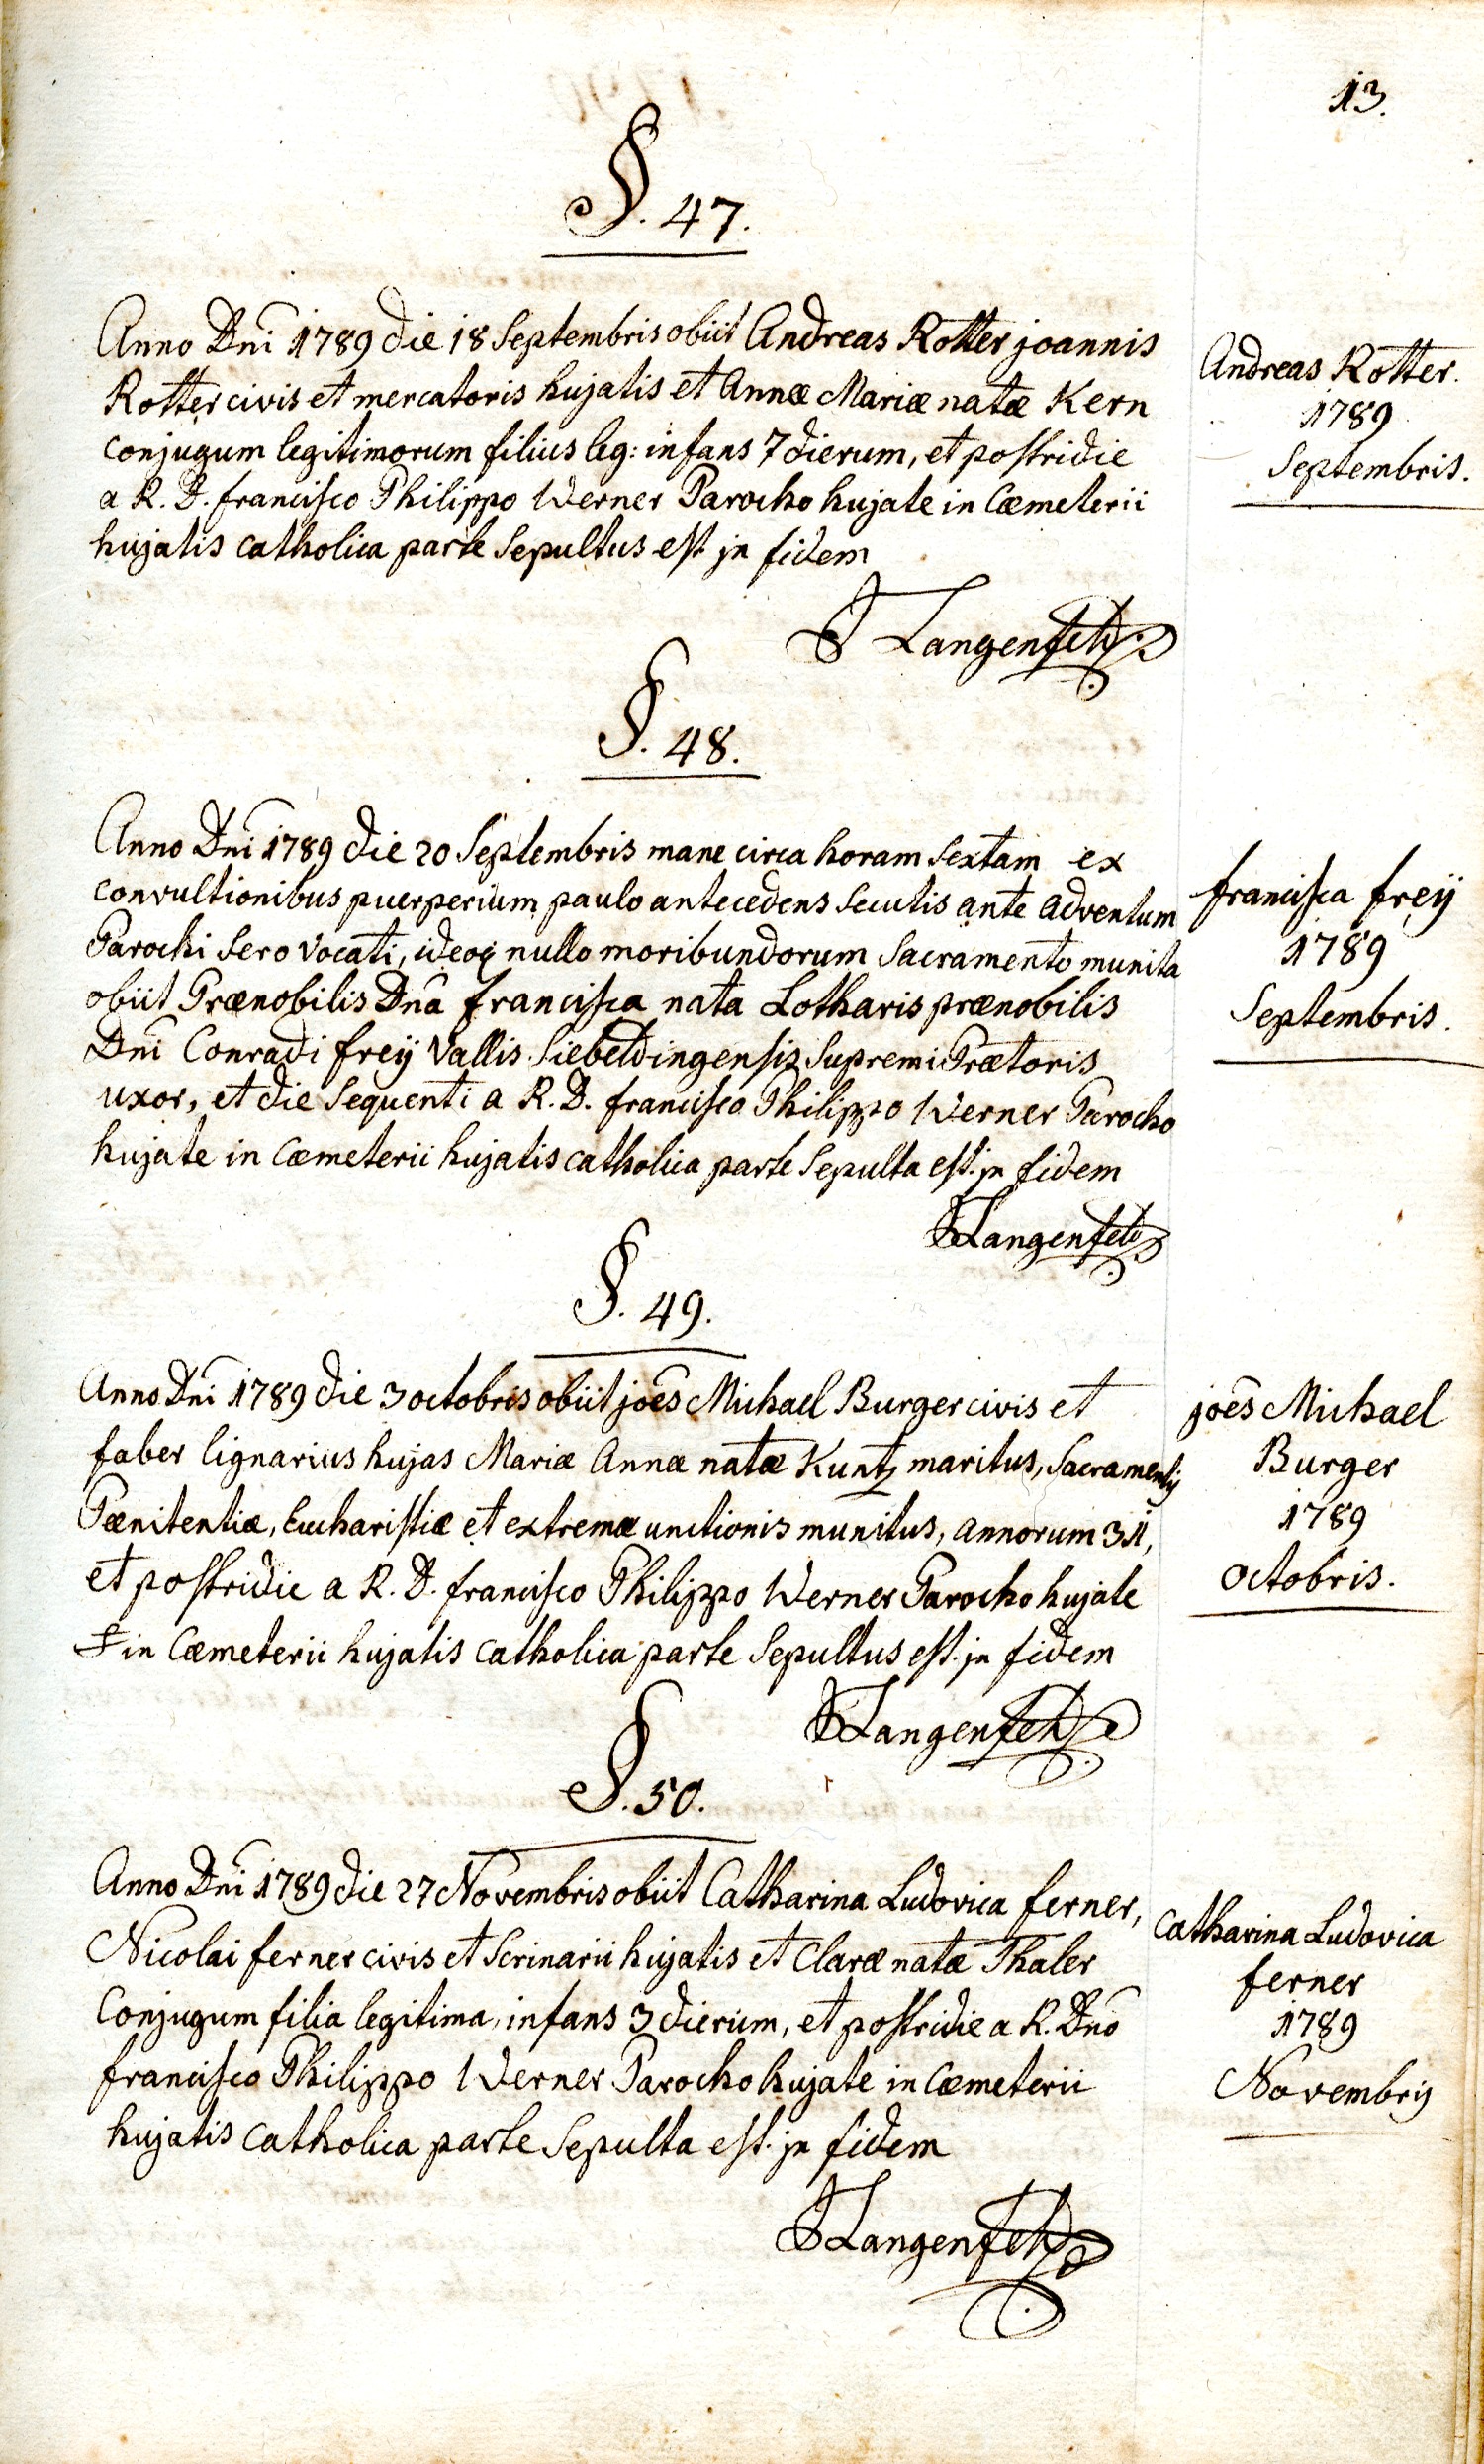 13.
§. 47.
Anno Dni 1789 die 18 Septembris obiit Andreas Rotter joannis
Rotter civis et mercatoris hujatis et Annæ Mariæ natæ Kern
conjugum legitimorum filius leg: infans 7 dierum, et postridie
a R. D. francisco Philippo Werner Parocho hujate in Cæmeterii
hujatis catholica parte Sepultus est jn fidem
Andreas Rotter.
1789
Septembris.
J Langenfeld
§. 48.
Anno Dni 1789 die 20 Septembris mane circa horam Sextam ex
convultionibus puerperium paulo antecedens Secutis ante adventum
Parochi Sero vocati, ideoq nullo moribundorum Sacramento munita
obiit Prænobilis Dna francisca nata Lotharis prænobilis
Dni Conradi freÿ Vallis Siebeldingensis Supremi Prætoris
uxor, et die Sequenti a R. D. francisco Philippo Werner Parocho
hujate in Cæmeterii hujatis catholica parte Sepulta est. jn fidem
francisca freÿ
1789
Septembris.
JLangenfeld
§. 49.
Anno Dni 1789 die 3 octobris obiit joes Michael Burger civis et
faber lignarius hujas Mariæ Annæ natæ Kuntz maritus, Sacramentis
Pænitentiæ, Eucharistiæ et extremæ unctionis munitus, annorum 31,
et postridie a R. D. francisco Philippo Werner Parocho hujate
in Cæmeterii hujatis catholica parte Sepultus est. jn fidem
joes Michael
Burger
1789
octobris.
JLangenfeld
§. 50.
Anno Dni 1789 die 27 Novembris obiit Catharina Ludovica ferner,
Nicolai ferner civis et Scrinarii hujatis et Claræ natæ Thaler
Conjugum filia legitima, infans 3 dierum, et postridie a R. Dno
francisco Philippo Werner Parocho hujate in Cæmeterii
hujatis catholica parte Sepulta est. jn fidem
Catharina Ludovica
ferner
1789
Novembris
JLangenfeld